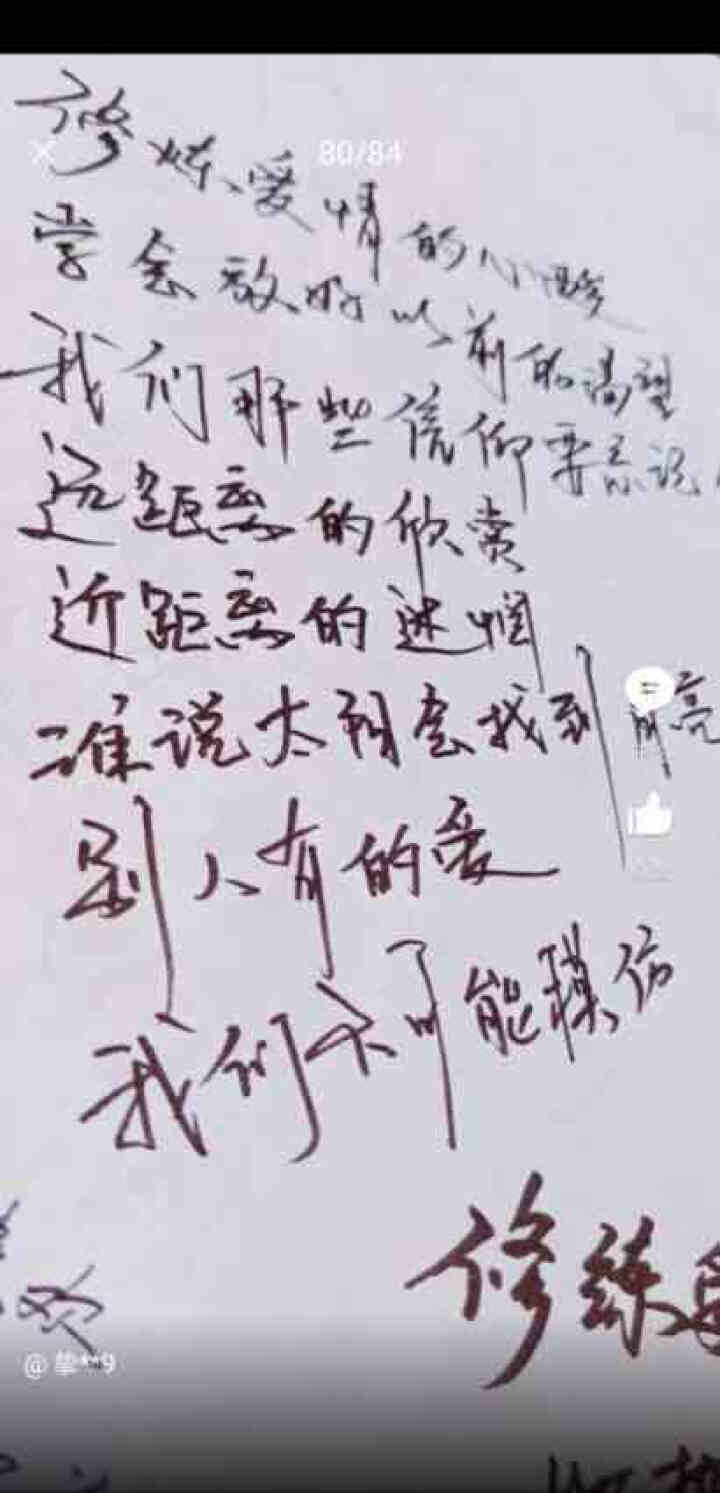 80/84
修炼爱情的心酸
学会放好以前的渴望
我们那些信仰要忘记
远距离的欣赏
近距离的迷惘
谁说太阳会找到月亮
别人有的爱
我们不可能模仿
修练
@ 挚**9